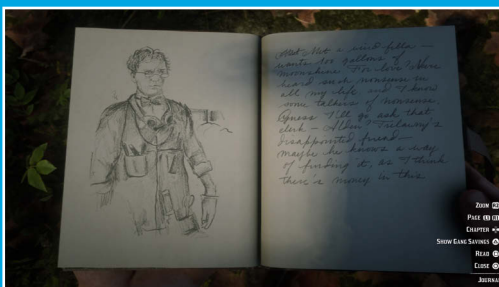 Met a wierd fella —
wants 100 gallons of
moonshine. Never
heard such nonsense in
all my life and I know
some talkers of nonsense.
Guess I'll go ask that
clerk — Alden, Trelawny's
disappointed friend —
maybe he knows a way
of finding it, as I think
there's money in this
ZOOM R2
PAGE L1 R1
CHAPTER
SHOW GANG SAVINGS
READ
CLOSE
JOURNAL